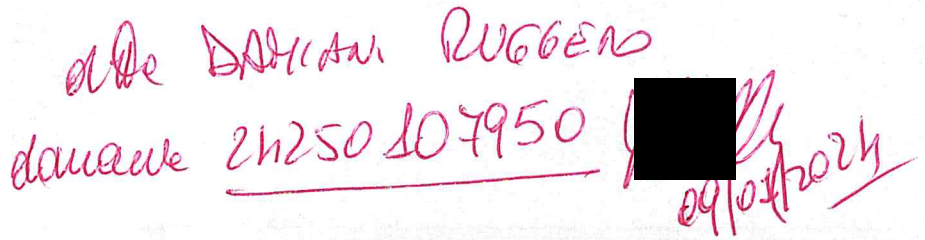 DAMIANI RUGGERO
domande 24250107950
09/01/2024